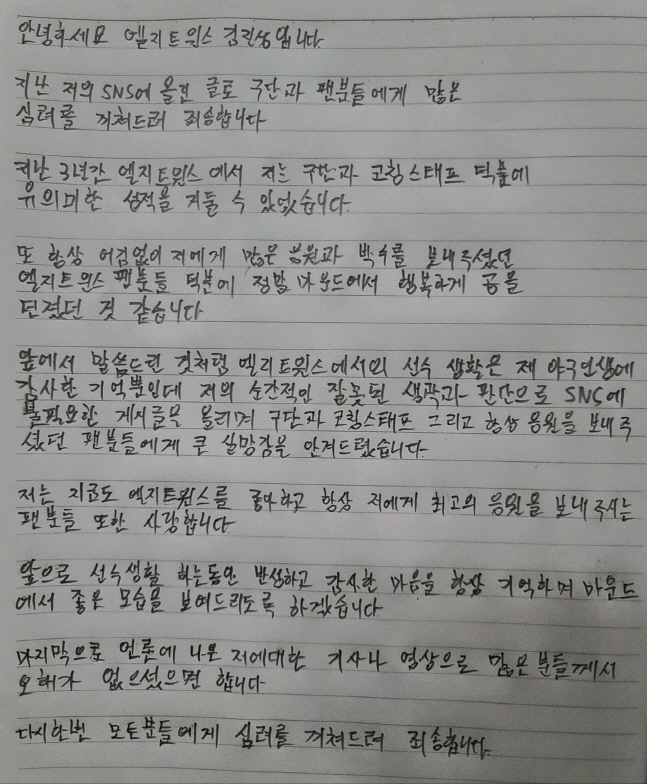 안녕하세요 엘지트윈스 김진성입니다.
지난 저의 SNS에 올린 글로 구단과 팬분들에게 많은
심려를 끼쳐드려 죄송합니다
지난 3년간 엘지트윈스에서 저는 구단과 코칭스태프 덕분에
유의미한 성적을 거둘 수 있었습니다.
또 항상 어김없이 저에게 많은 응원과 박수를 보내주셨던
엘지트윈스 팬분들 덕분에 정말 마운드에서 행복하게 공을
던졌던 것 같습니다
앞에서 말씀드린 것처럼 엘리트윈스에서의 선수 생활은 제 야구인생에
감사한 기억뿐인데 저의 순간적인 잘못된 생각과 판단으로 SNS에
불필요한 게시글을 올리며 구단과 코칭스태프 그리고 항상 응원을 보내주
셨던 팬분들에게 큰 실망감을 안겨드렸습니다.
저는 지금도 엘지트윈스를 좋아하고 항상 저에게 최고의 응원을 보내주시는
팬분들 또한 사랑합니다.
앞으로 선수생활 하는동안 반성하고 감사한 마음을 항상 기억하며 마운드
에서 좋은 모습을 보여드리도록 하겠습니다.
마지막으로 언론에 나온 저에대한 기사나 영상으로 많은분들께서
오해가 없으셨으면 합니다
다시한번 모든분들에게 심려를 끼쳐드려 죄송합니다.